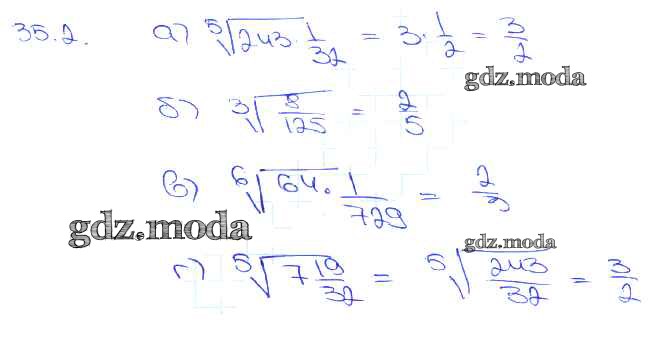 35.2. а) ⁵√(243 · 1/32) = 3 · 1/2 = 3/2
gdz.moda
б) ³√(8/125) = 2/5
в) ⁶√(64 · 1/729) = 2/3
gdz.moda
gdz.moda
г) ⁵√(7 19/32) = ⁵√(243/32) = 3/2